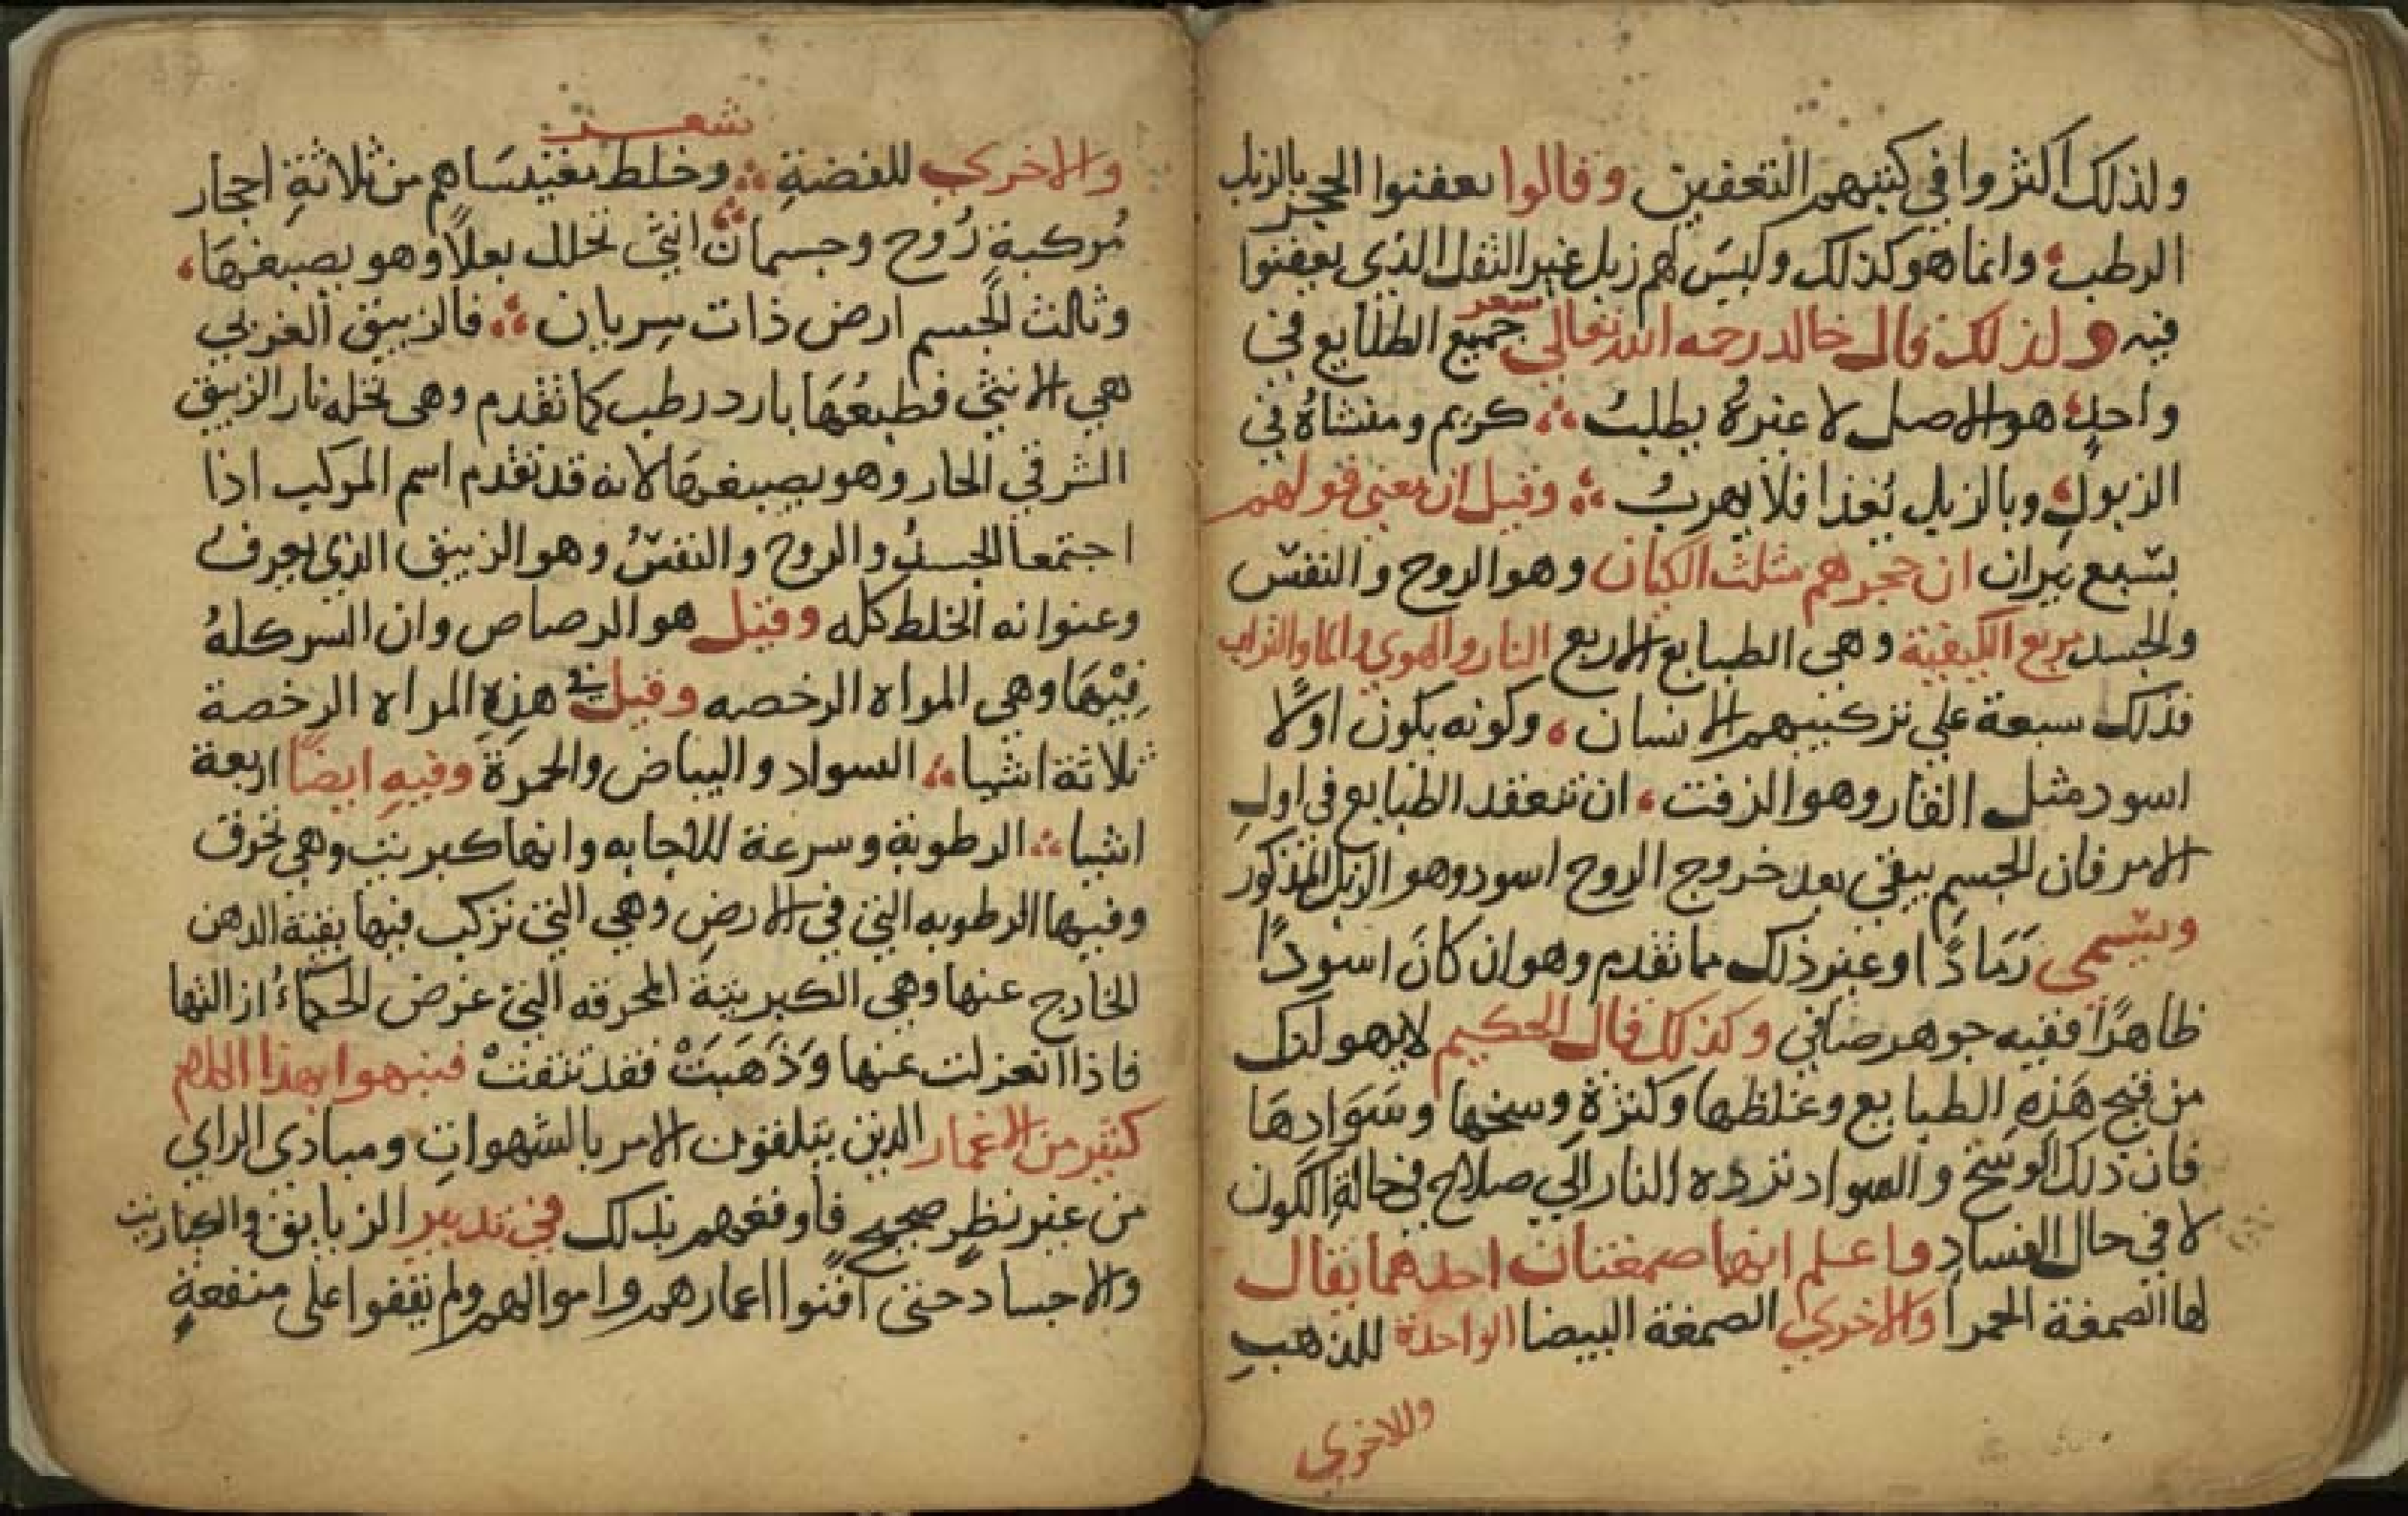 ولذلك اكثروا في كتبهم التعفين وقالوا يعفنوا الحجر بالزبل
الرطب وانما هو كذلك وليس لهم زبل غير الثفل الذي يعفنوا
فيه ولذلك قال خالد رحمه الله تعالى شعر جميع الطبايع في
واحد هو الاصل لا غيره يطلب كريم ومنشاه في
الزبول وبالزبل يغذا فلا يهرب وقيل ان معنى قولهم
بسبع نيران ان حجرهم مثلث الكيان وهو الروح والنفس
والجسد مربع الكيفية وهي الطبايع الاربع النار والهوي والما والتراب
فذلك سبعة علي تركيبهم الانسان وكونه يكون اولا
اسود مثل القار وهو الزفت ان تنعقد الطبايع في اول
الامر فان الجسم يبقي بعد خروج الروح اسود وهو الزبل المذكور
ويسمى رمادا وغير ذلك مما تقدم وهو ان كان اسودا
ظاهرا ففيه جوهر صافي وكذلك قال الحكيم لا يهولنك
من قبح هذه الطبايع وغلظها وكثرة وسخها وسوادها
فان ذلك الوسخ والسواد ترده النار الي صلاح في حالة الكون
لا في حال الفساد واعلم انها صمغتان احدهما يقال
لها الصمغة الحمرا والاخري الصمغة البيضا الواحدة للذهب
وللاخري
شعر
والاخري للفضة وخلط مغنيساهم من ثلاثة احجار
مركبة روح وجسمان انثى تخلل بعلا وهو يصبغها
وثالث الجسم ارض ذات سريان فالزيبق الغربي
هي الانثى فطبعها بارد رطب كما تقدم وهي تخله نار الزيبق
الشرقي الحار وهو يصبغها لانه قد تقدم اسم المركب اذا
اجتمعا الجسد والروح والنفس وهو الزيبق الذي يعرف
وعنوانه الخلط كله وقيل هو الرصاص وان السر كله
فيها وهي المراه الرخصه وقيل في هذه المراه الرخصة
ثلاثة اشيا السواد والبياض والحمرة وفيه ايضا اربعة
اشيا الرطوبة وسرعة الاجابه وانها كبريت وهي تحرق
وفيها الرطوبه التي في الارض وهي التي تركب فيها بقية الدهن
الخارج عنها وهي الكبريتية المحرقه التي غرض الحكماء ازالتها
فاذا انعزلت عنها وذهبت فقد تنقت فيتهوا بهذا الكلام
كثير من الاغمار الذين يتلقون الامر بالشهوات ومبادي الراي
من غير نظر صحيح فاوقعهم بذلك في تدبير الزيابق والكباريت
والاجساد حتى افنوا اعمارهم واموالهم ولم يقفوا على منفعة